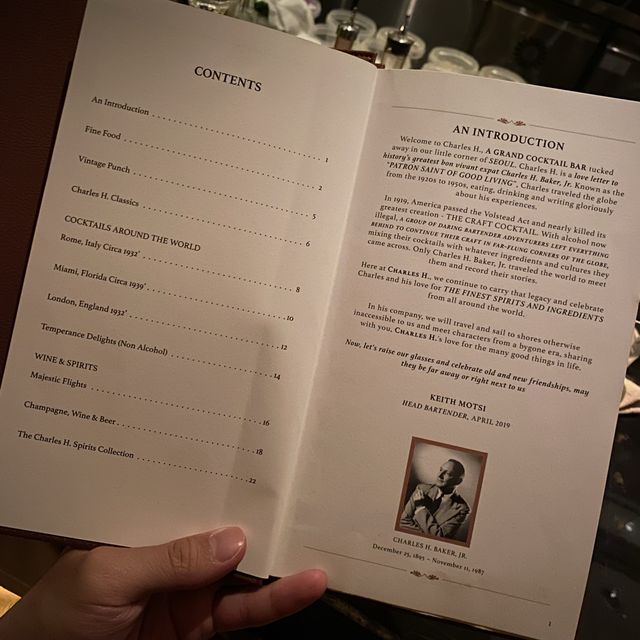 CONTENTS
An Introduction 1
Fine Food 2
Vintage Punch 5
Charles H. Classics 6
COCKTAILS AROUND THE WORLD
Rome, Italy Circa 1932' 8
Miami, Florida Circa 1939' 10
London, England 1932' 12
Temperance Delights (Non Alcohol) 14
WINE & SPIRITS
Majestic Flights 16
Champagne, Wine & Beer 18
The Charles H. Spirits Collection 22
AN INTRODUCTION
Welcome to Charles H., A GRAND COCKTAIL BAR tucked
away in our little corner of SEOUL. Charles H. is a love letter to
history's greatest bon vivant expat Charles H. Baker, Jr. Known as the
"PATRON SAINT OF GOOD LIVING", Charles traveled the globe
from the 1920s to 1950s, eating, drinking and writing gloriously
about his experiences.
In 1919, America passed the Volstead Act and nearly killed its
greatest creation - THE CRAFT COCKTAIL. With alcohol now
illegal, A GROUP OF DARING BARTENDER ADVENTURERS LEFT EVERYTHING
BEHIND TO CONTINUE THEIR CRAFT IN FAR-FLUNG CORNERS OF THE GLOBE,
mixing their cocktails with whatever ingredients and cultures they
came across. Only Charles H. Baker, Jr. traveled the world to meet
them and record their stories.
Here at CHARLES H., we continue to carry that legacy and celebrate
Charles and his love for THE FINEST SPIRITS AND INGREDIENTS
from all around the world.
In his company, we will travel and sail to shores otherwise
inaccessible to us and meet characters from a bygone era, sharing
with you, CHARLES H.'s love for the many good things in life.
Now, let's raise our glasses and celebrate old and new friendships, may
they be far away or right next to us
KEITH MOTSI
HEAD BARTENDER, APRIL 2019
CHARLES H. BAKER, JR.
December 25, 1895 – November 11, 1987
1